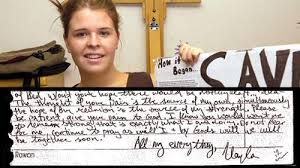 How it
Began
SAVE
of God, would your hope there would be
the thought of your pain is the source of my own, simultaneously
the hope of our reunion is the source of my strength. Please
be patient, give your pain to God. I know you would want me
to remain strong. That is exactly what I am doing. Do not fear
for me, continue to pray as will I + by God's will we will
be together soon.
All my everything,
Kayla